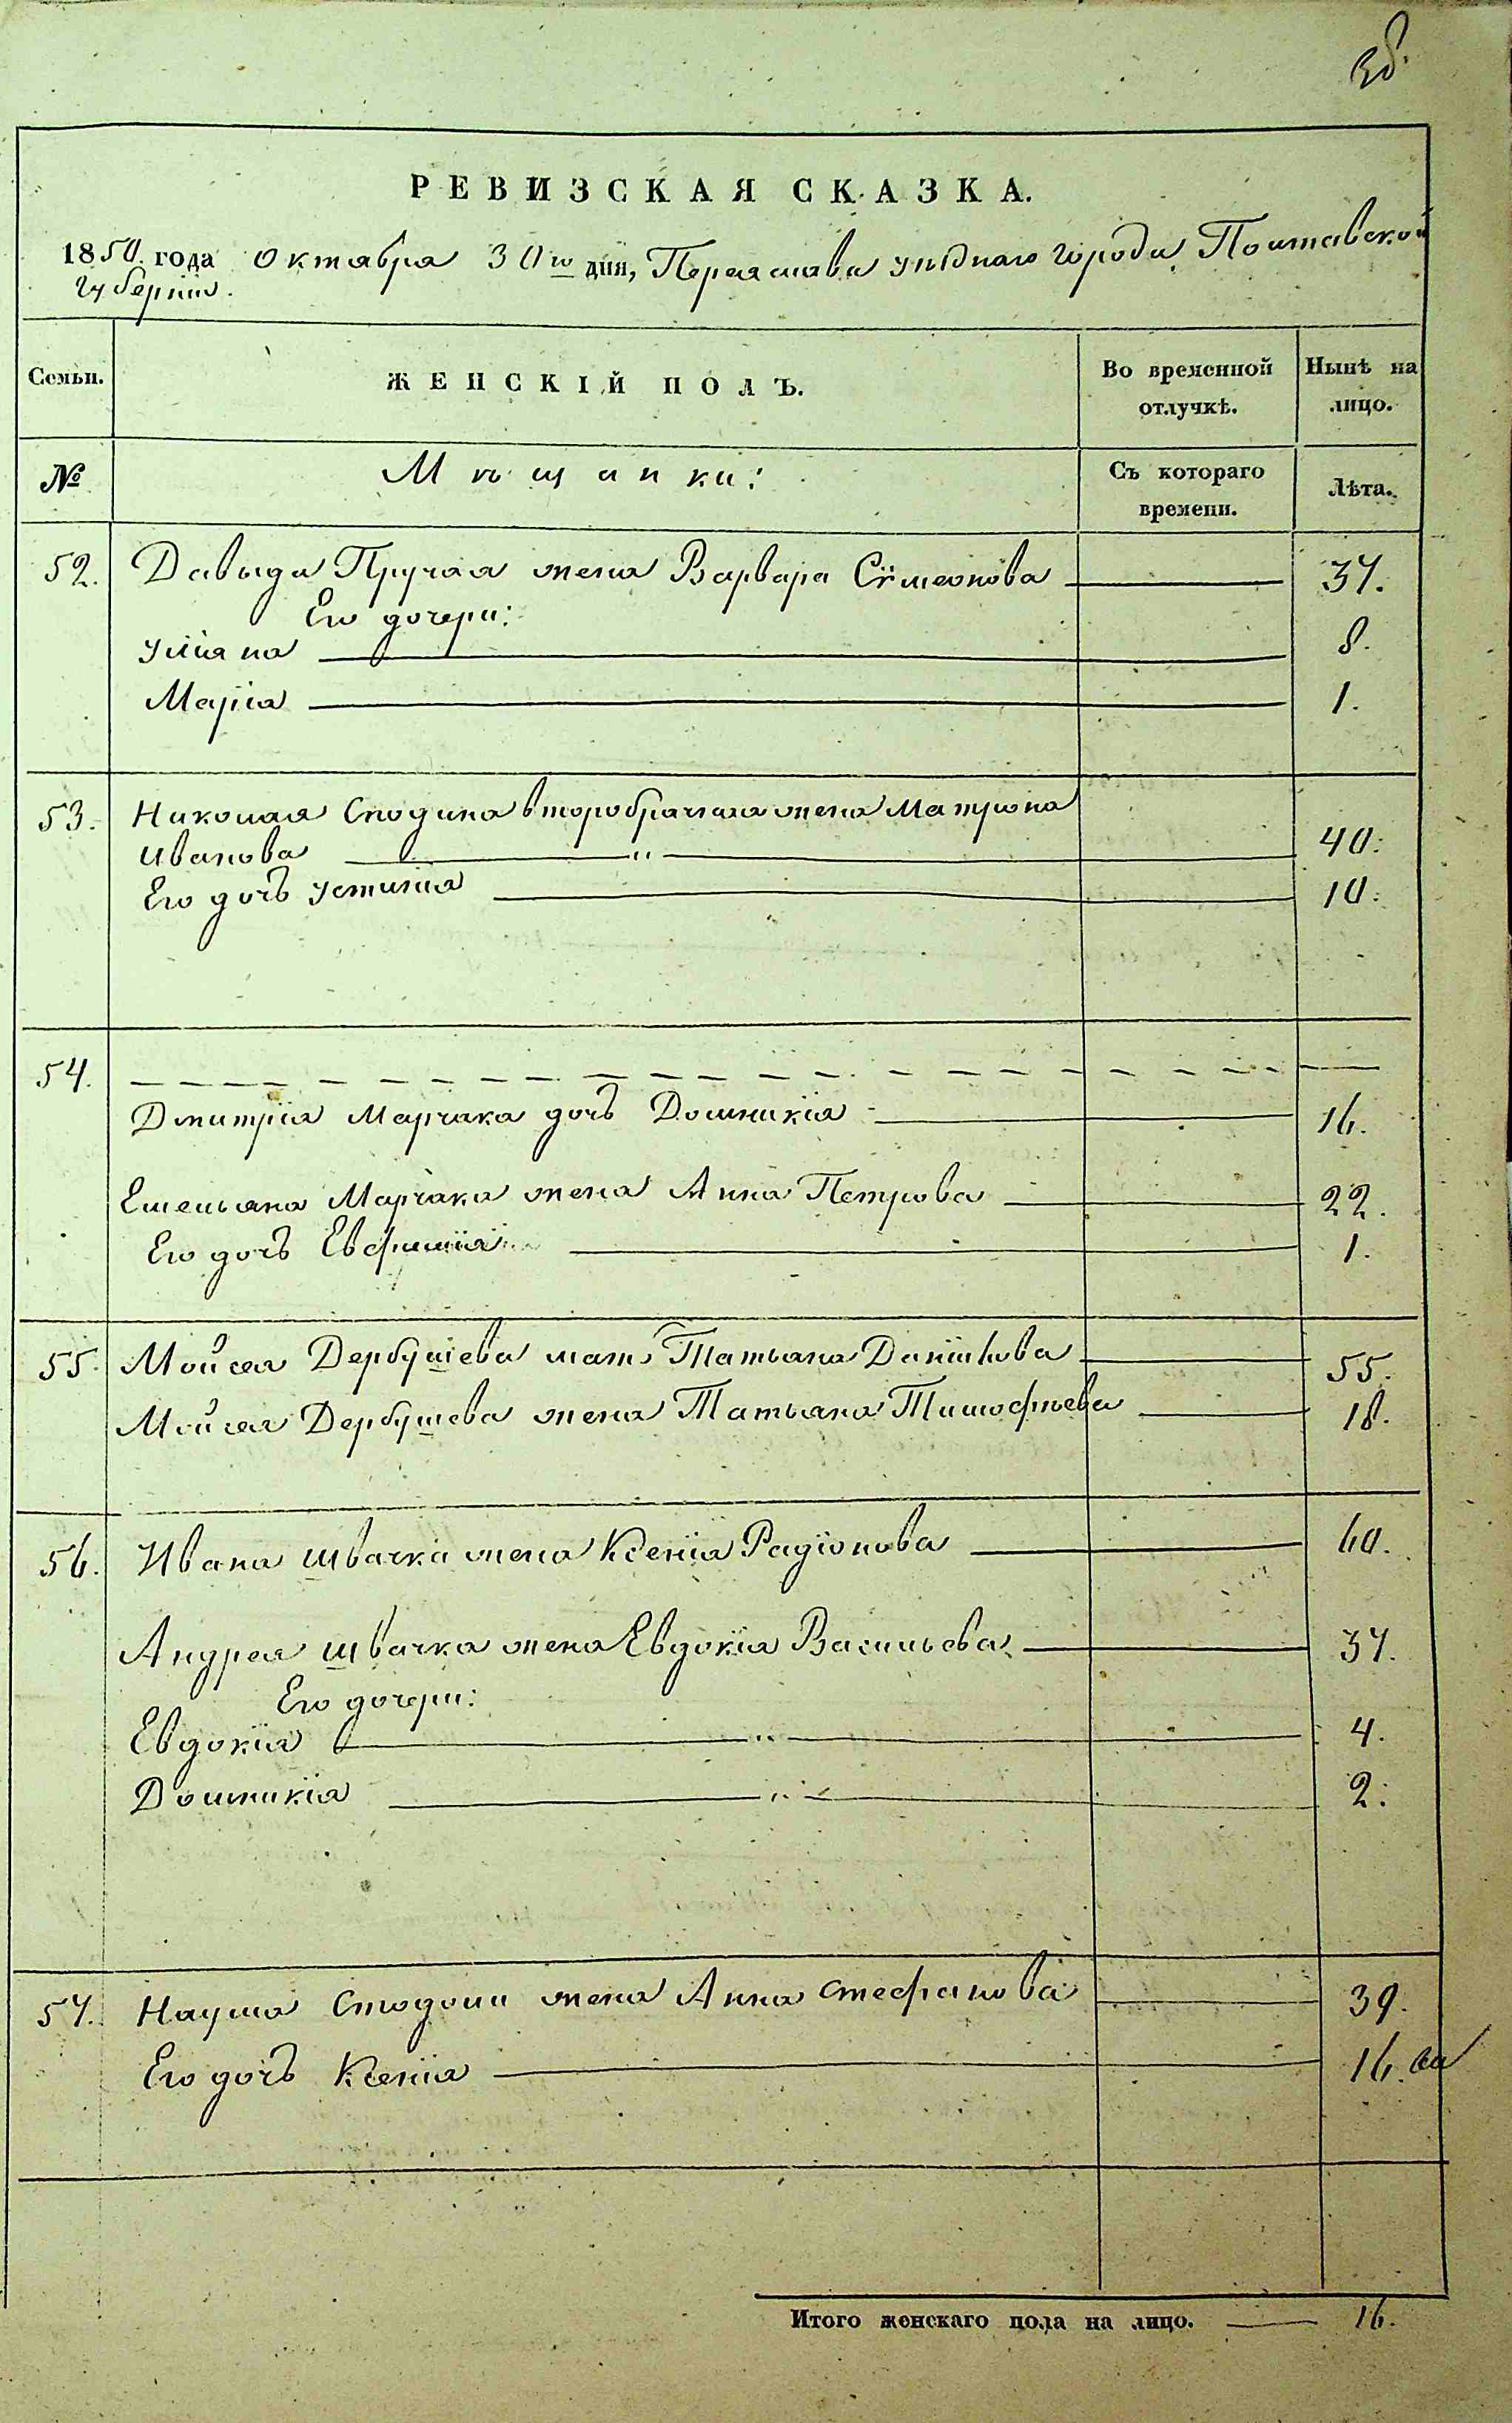 38.
РЕВИЗСКАЯ СКАЗКА.
1850. года Октября 30го дня, Переяслава уѣзднаго города, Полтавской
губерніи.
Семьи. ЖЕНСКІЙ ПОЛЪ. Во временной отлучкѣ. Нынѣ на лицо.
№ Мѣщанки: Съ котораго времени. Лѣта.
52. Давыда Пручая жена Варвара Сѵмеонова 37.
Его дочери:
Уліяна 8.
Марія 1.
53. Николая Сподина второбрачная жена Матрона
Иванова " 40.
Его дочь Устинія 10.
54.
Дмитрія Марчака дочь Домникія 16.
Емельяна Марчака жена Анна Петрова 22.
Его дочь Евфимія 1.
55. Мойсея Дербушева мать Татьяна Даніилова 55.
Мойсея Дербушева жена Татьяна Тимофѣева 18.
56. Ивана Швачка жена Ксенія Радіонова 60.
Андрея Швачка жена Евдокія Васильева 37.
Его дочери:
Евдокія " 4.
Домникія " 2.
57. Наума Стодоли жена Анна Стефанова 39.
Его дочь Ксенія 16.
Итого женскаго пола на лицо. 16.